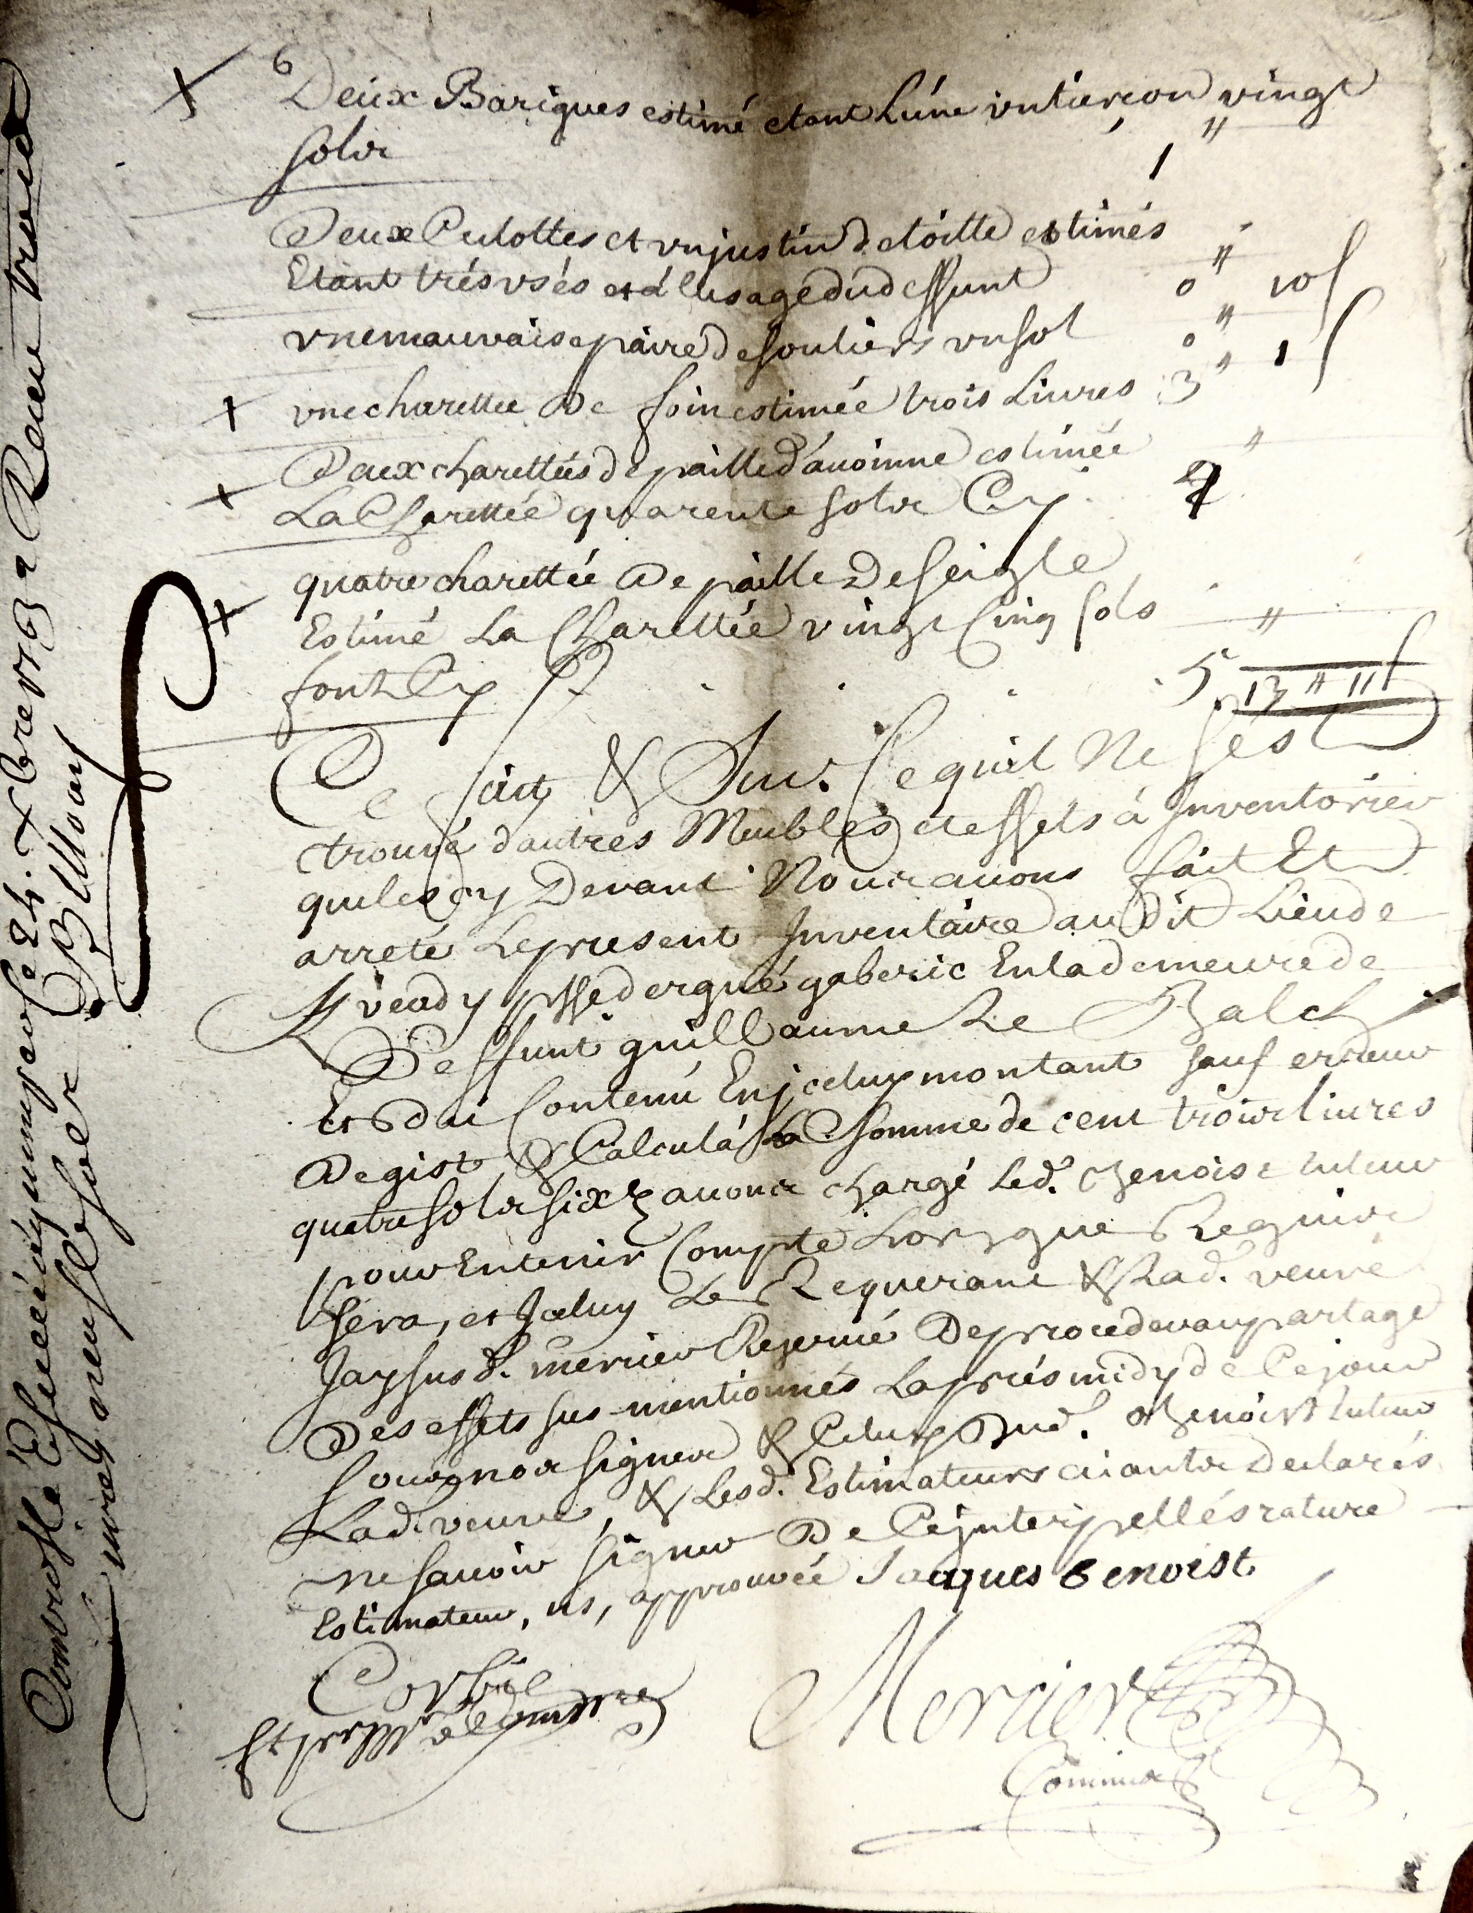 6
Deux Bariques estimé etant L'une un tierçon vingt
sols 1 "
Deux Culottes et un justin de toille estimés
Etant trés usés et a l'usage dud deffunt 0 " 10 s
une mauvaise paire de souliers un sol 0 " 1 s
une charettee De foin estimée trois Livres 3 "
Deux charettées de paille d'avoinne estimée
La Charettée quarente sols Cy 4 "
quatre charettée De paille De seigle
Estimé La Charettée vingt Cinq sols
font Cy 5 "
13 " 11 s
Ce fait & Sur Ce quil Ne sest
trouvé d'autres Meubles et effets à Inventorier
que les cy Devant Nous avons fait Et
arreté Le present Inventaire au dit Lieu de
pse dergué gaberic En la demeure de
Deffunt guillaume Le Balch
Et Du Contenu En jceluy montant sauf erreur
De gist & Calcul á la somme de cent trois livres
quatre sols six avons chargé Led. Benoist tuteur
pour En tenir Compte Lors que Requis
sera, et Jceluy Le Requerant & Lad. veuve
Jay sus d. mercier De proceder au partage
Des effets sus mentionnés L'aprés midy de Ce jour
sous nos signes & Celuy Dud. Benoist tuteur
Lad. veuve, & Lesd. Estimateurs ci antes Declarés
ne savoir signer De Ce jnterpellés rature
Estimateur, us, approuvée Jacques Benoist
Corbie Mercier
Commis
Controllé Et scellé a quimper le 24. Xbre 1763 Receu trois
Livres neuf sols